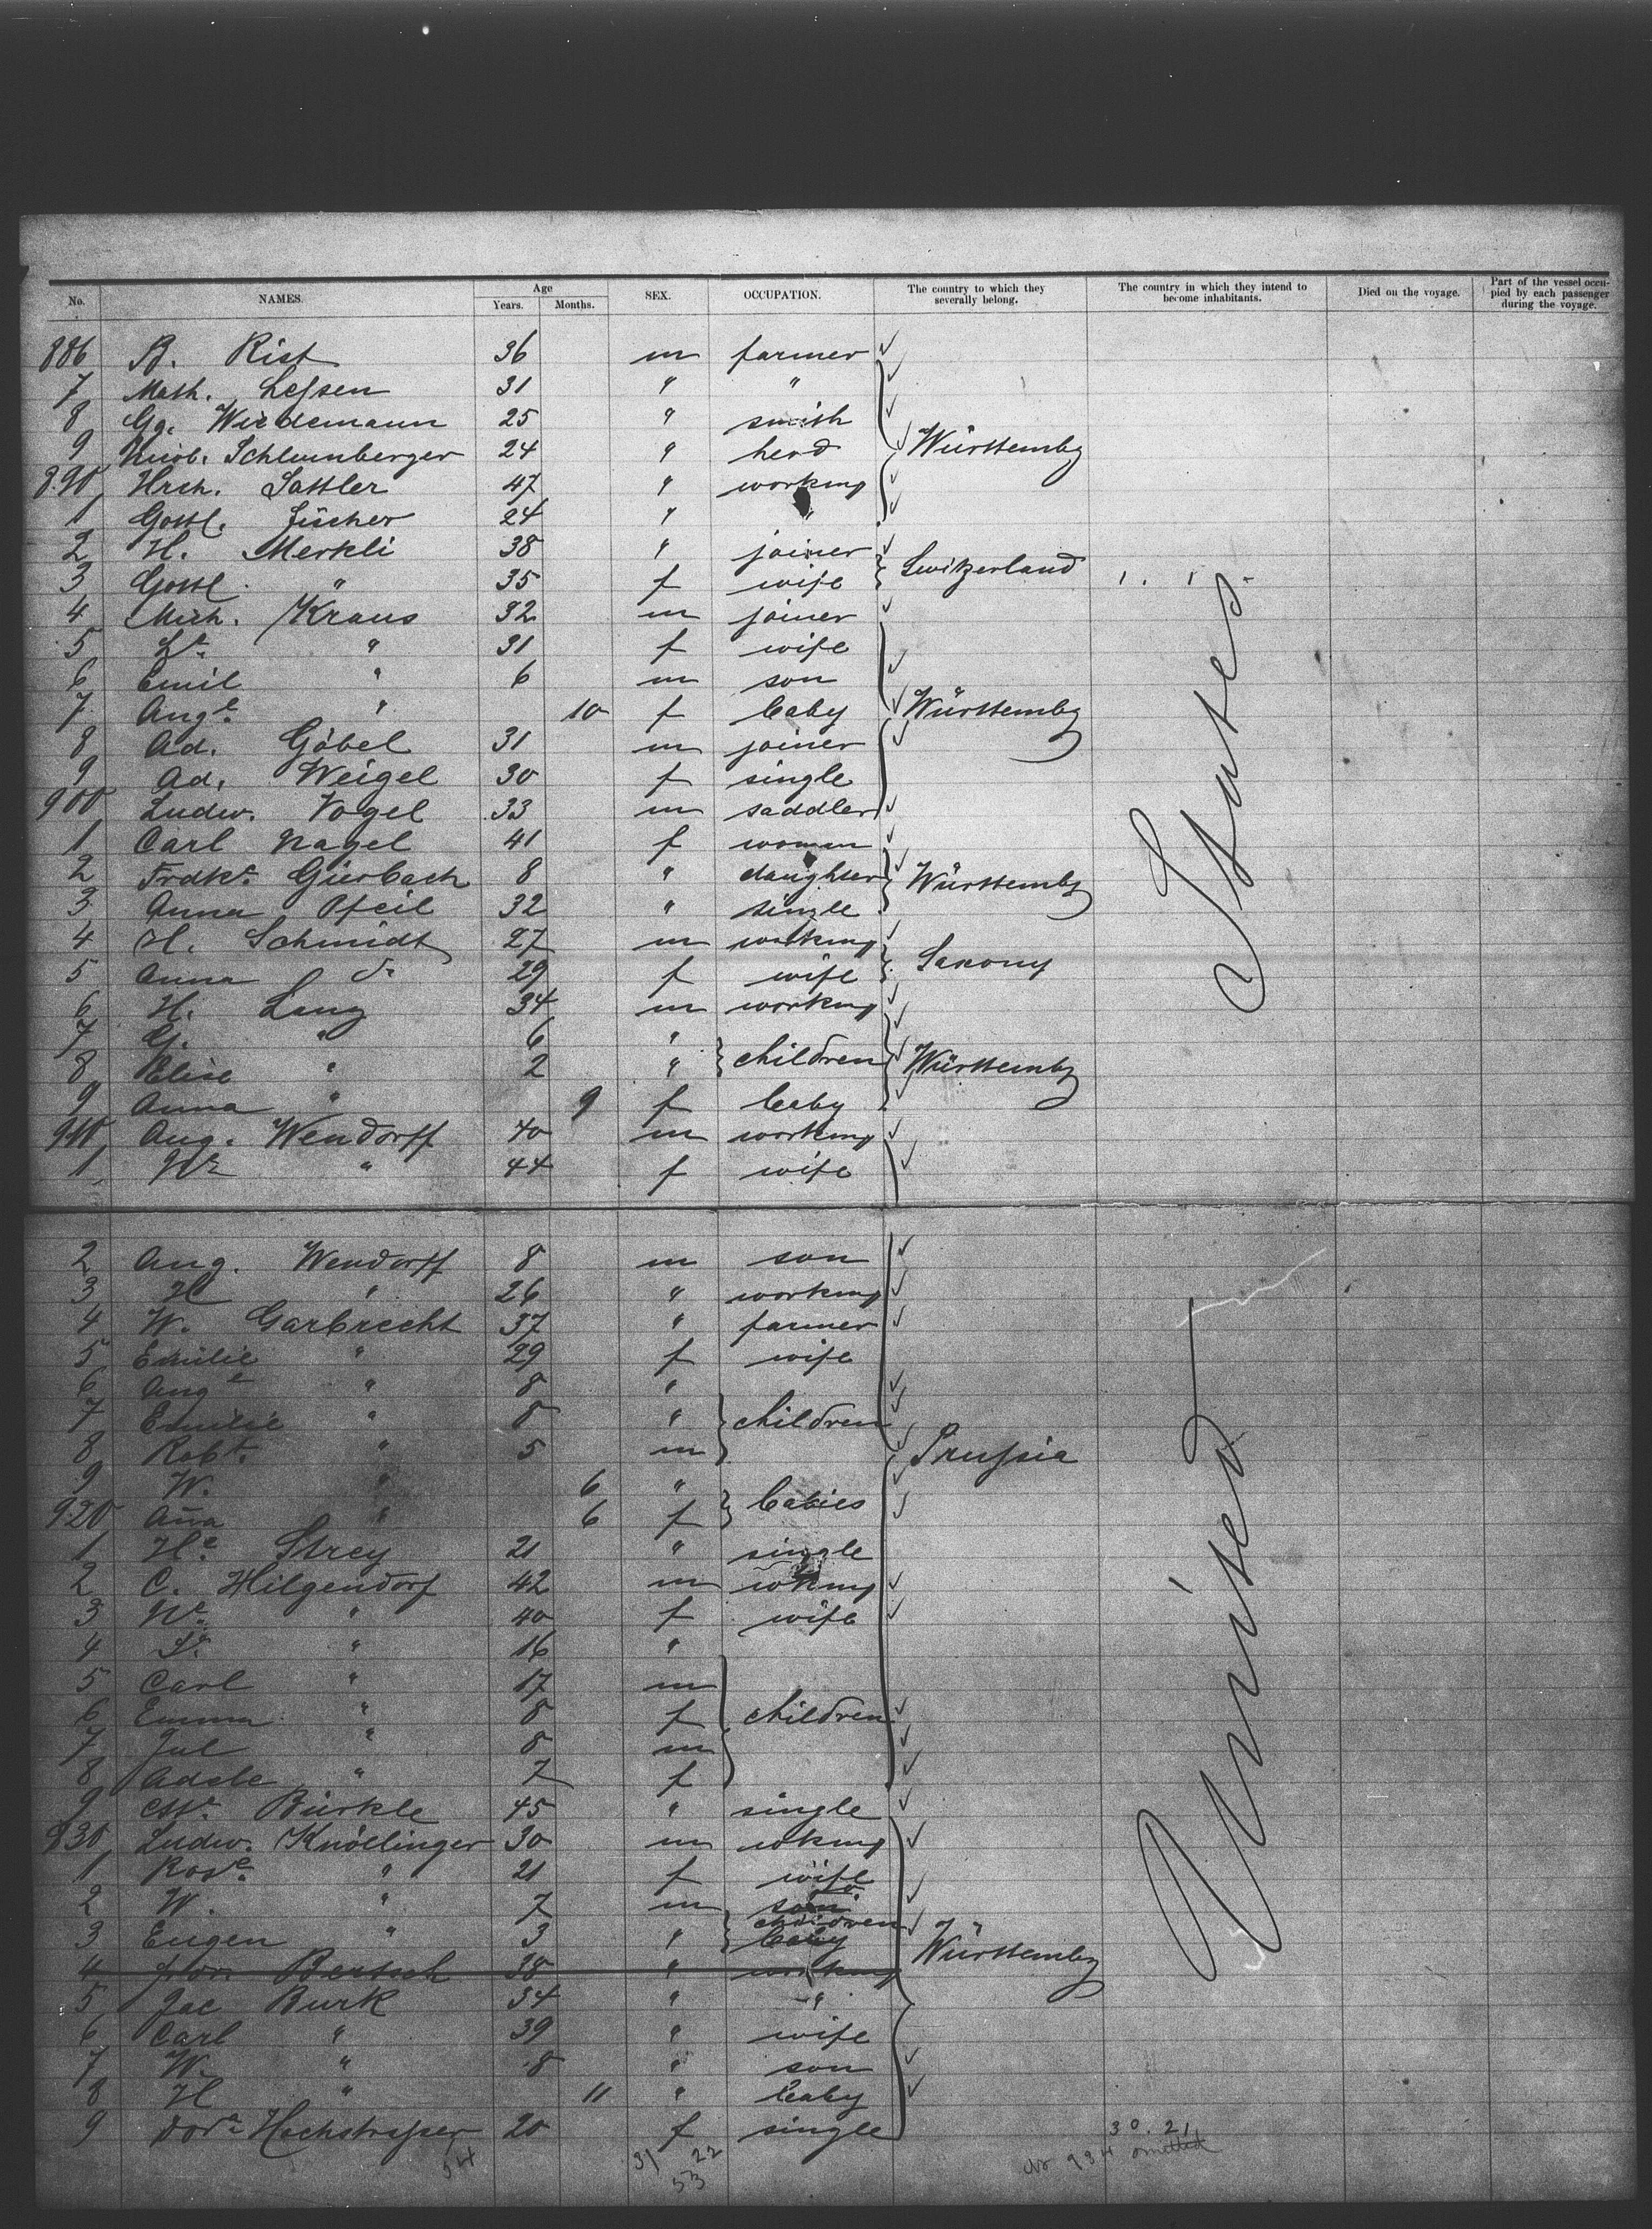 No. NAMES. Age Years. Months. SEX. OCCUPATION. The country to which they severally belong. The country in which they intend to become inhabitants. Died on the voyage. Part of the vessel occupied by each passenger during the voyage.
886 B. Rist 36 m farmer
7 Math. Leſsen 31 " "
8 Gg. Wiedemann 25 " smith
9 Schlumberger 24 " herd Württembg
890 Hrch. Sattler 47 " working
1 Gottl. Fischer 24 " "
2 H. Merkli 38 " joiner
3 Gottl. " 35 f wife Switzerland
4 Mich. Kraus 32 m joiner
5 " 31 f wife
6 Emil " 6 m son
7 Augte " 10 f baby Württembg
8 Ad. Göbel 31 m joiner
9 Ad. Weigel 30 f single
900 Ludw. Vogel 33 m saddler
1 Carl Nagel 41 f woman
2 Frdke. Gierbach 8 " daughter Württembg
3 Anna Pfeil 32 " single
4 H. Schmidt 27 m working
5 Anna do 29 f wife Saxony
6 H. Lang 34 m working
7 G. " 6 "
8 Elise " 2 " children Württembg
9 Anna " 9 f baby
910 Aug. Wendorff 40 m working
1 " 44 f wife
2 Aug. Wendorff 8 m son
3 H " 26 " working
4 W. Garbrecht 37 " farmer
5 Emilie " 29 f wife
6 Auge " 8 "
7 Emilie " 8 " children
8 Robt. " 5 m Pruſsia
9 W. " 6 "
920 Aña " 6 f babies
1 He. Strey 21 " single
2 C. Hilgendorf 42 m wking
3 We. " 40 f wife
4 " 16 "
5 Carl " 17 m
6 Emma " 8 f children
7 Jul " 8 m
8 Adele " 7 f
9 Bürkle 45 " single
930 Ludw. Knöllinger 30 m wking
1 Rose. " 21 f wife
2 W. " 7 m son
3 Eugen " 3 " children baby
4 Bertsch 38 " working Württembg
5 Jac Burk 34 " "
6 Carl " 39 " wife
7 W. " 8 " son
8 H " 11 " baby
9 Dora Hochstraſser 20 f single
United States.
54 31 22
53
30. 21
No 934 omitted